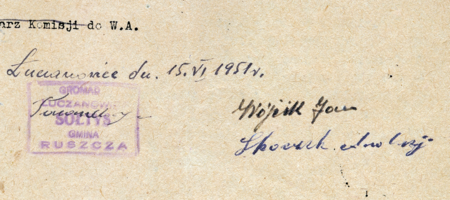 arz Komisji do W.A.
Łuczanowice dn. 15.VI 1951r.
GROMAD
ŁUCZANOWI
SOŁTYS
GMINA
RUSZCZA
Wójcik Jan